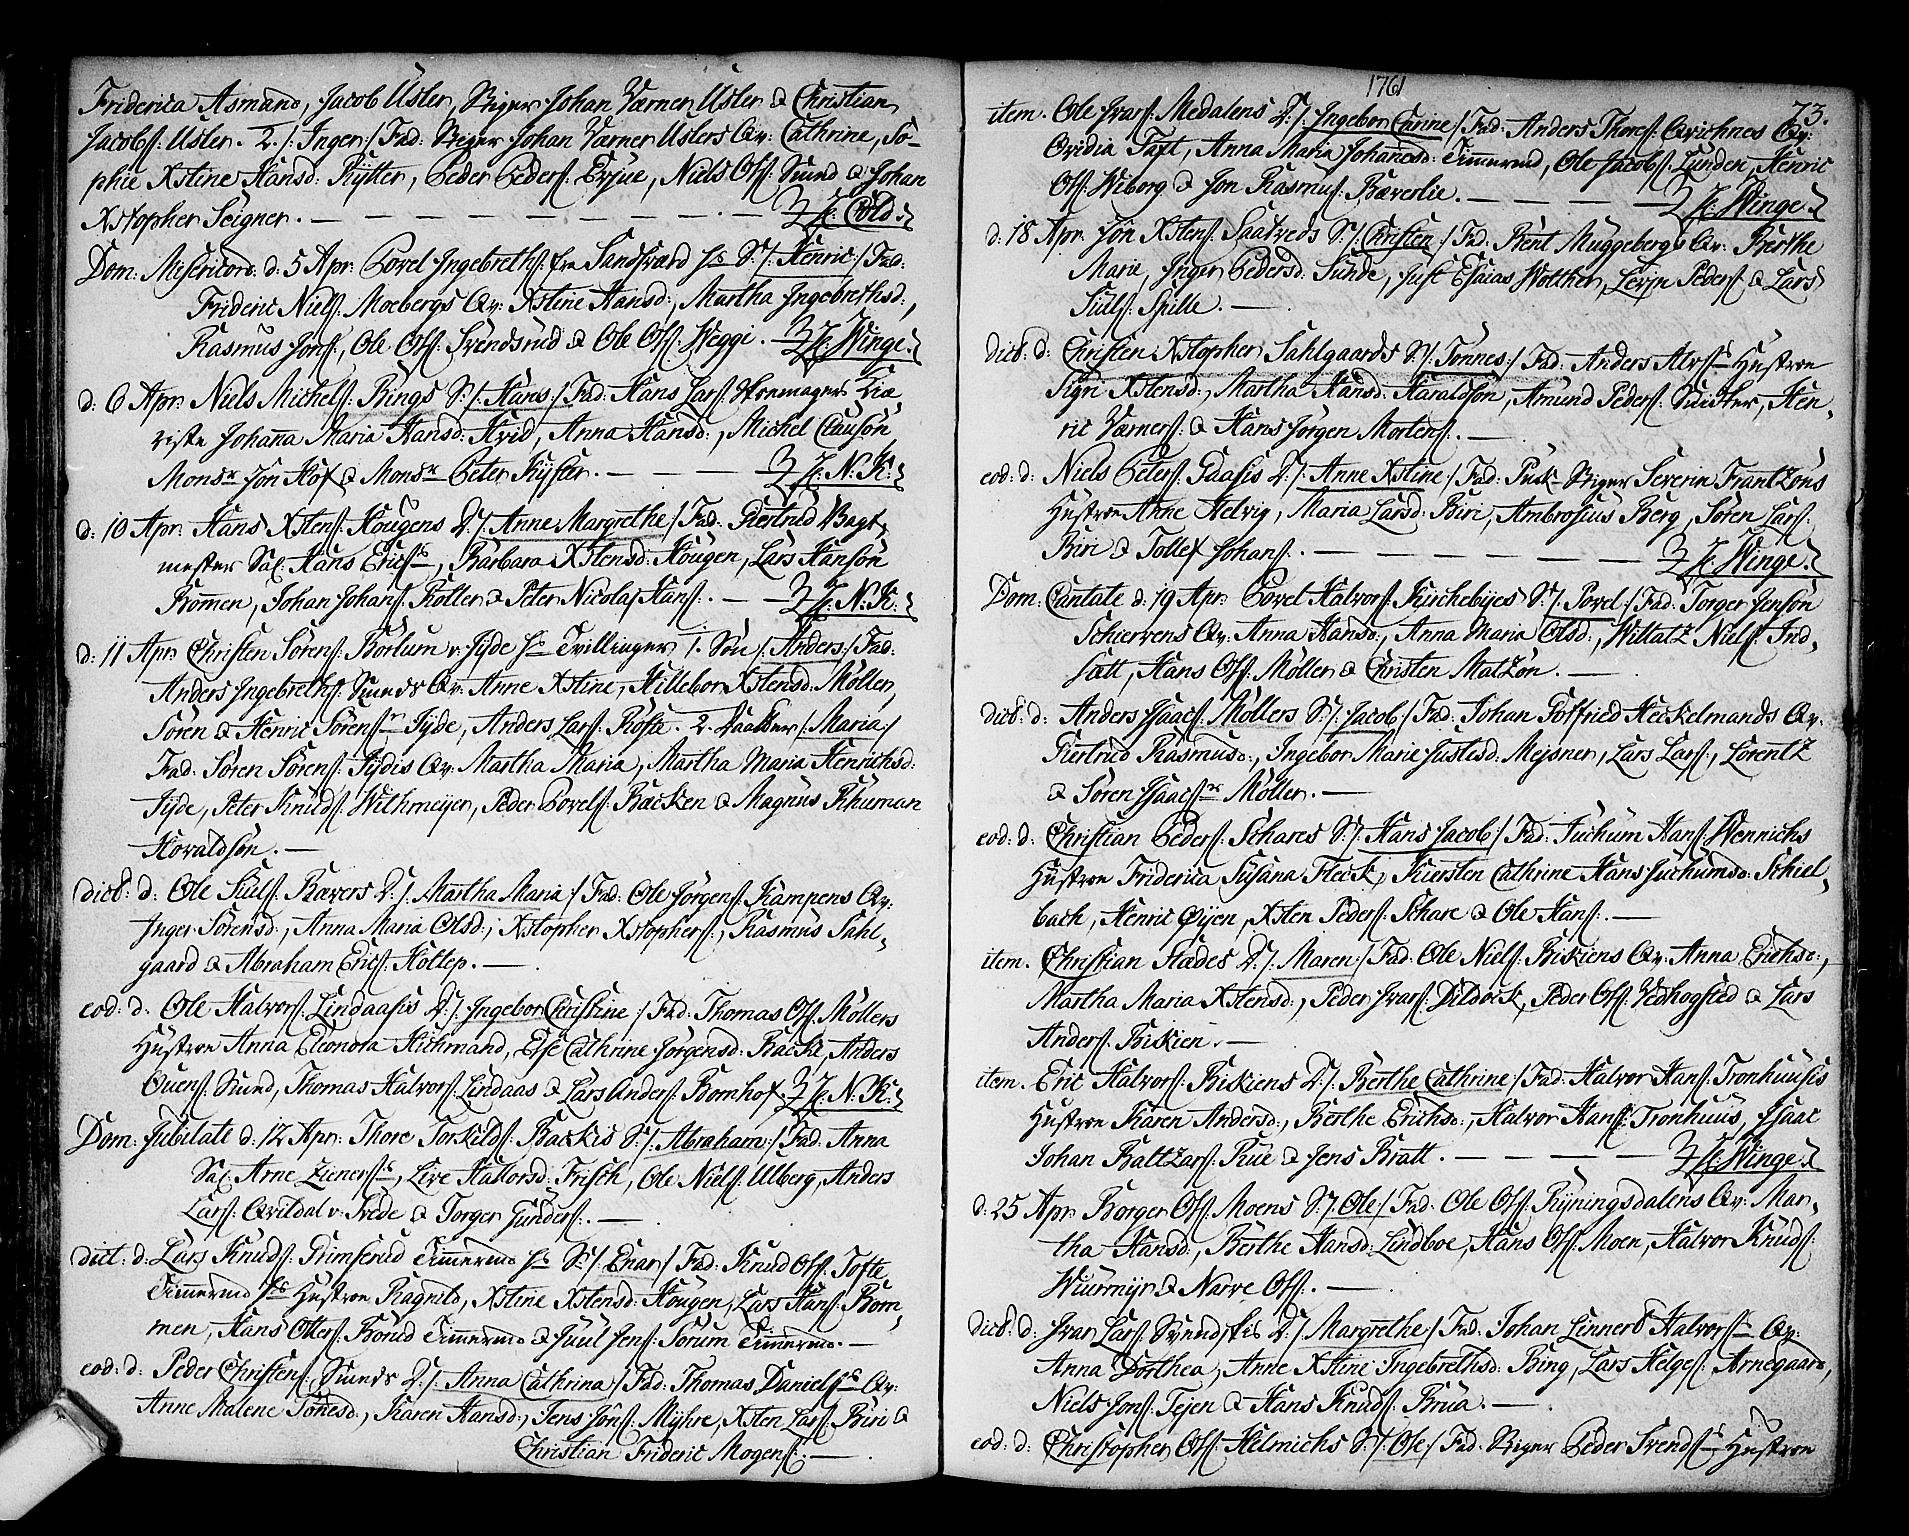 Friderica Asmand, Jacob Usler, Stiger Johan Værner Usler & Christian
Jacobs: Usler. 2. /: Inger:/ Fad: Stiger Johan Værner Uslers Qv: Cathrine, So-
phie Xstine Hansd: Rytter, Peder Peders: Erjue, Niels Ols: Sund & Johan
Xstopher Seigner. — H: Cold.
Dom: Misericord: d: 5 Apr: Povel Ingebreths: fra Sandsværd hs S: /: Henric:/ Fad:
Frideric Niels: Moebergs Qv: Xstine Hansd:, Martha Ingebrethsd:,
Rasmus Jons:, Ole Ols: Svendsrud & Ole Ols: Heggi. — H: Winge.
d: 6 Apr: Niels Michels: Rings S: /: Hans:/ Fad: Hans Lars: Skomager Kiæ
riste Johanna Maria Hansd: Hvid, Anna Hansd:, Michel Clauson,
Monsr Jon Hof & Monsr Peter Kyster. — H: N: K:
d: 10 Apr: Hans Xstens: Hougens D: /: Anne Margrethe:/ Fad: Giertrud Vagt,
mester Sal: Hans Erics:, Barbara Xstensd: Hougen, Lars Hanson
Bommen, Johan Johans: Roller & Peter Nicolaj Hans: — H: N: K:
d: 11 Apr: Christen Sörens: Borlum v: Jyde hs Tvillinger 1. Sön /: Anders:/ Fad:
Anders Ingebreths: Sunds Qv: Anne Xstine, Hillebor Xstensd: Möller,
Sören & Henric Sörens: Jyde, Anders Lars: Roste. 2. Daatter /: Maria:/
Fad: Sören Sörens: Jydis Qv: Martha Maria, Martha Maria Henrichsd:
Jyde, Peter Knuds: Withmeyer, Peder Povels: Backen & Magnus Schuman
Horaldsön. —
dict: d: Ole Juls: Bævers D: /: Martha Maria:/ Fad: Ole Jörgens: Kampens Qv:
Inger Sörensd:, Anna Maria Olsd:, Xstopher Xstophers:, Rasmus Sahl-
gaard & Abraham Erics: Holtep. —
eod: d: Ole Halvors: Lindaasis D: /: Ingebor Christine:/ Fad: Thomas Ols: Möllers
Hustroe Anna Eleonora Hichmand, Else Cathrine Jörgensd: Backe, Anders
Ouens: Sund, Thomas Halvors: Lindaas & Lars Anders: Bomhof. H: N: K:
Dom: Jubilate d: 12 Apr: Thore Torkilds: Backis S: /: Abraham:/ Fad: Anna
Sal: Arne Zieners:, Live Hallorsd: Frisch, Ole Niels: Ulberg, Anders
Lars: Qvildal v: Frede & Torger Gunders: —
dict: d: Lars Knuds: Grimserud Timmermd hs S: /: Enar:/ Fad: Knud Ols: Tofte
Timmermd hs Hustroe Ragnild, Xstine Xstensd: Hougen, Lars Hans: Bom-
men, Hans Ottes: Forud Timmermd & Juul Jens: Torum Timmermd. —
eod: d: Peder Christens: Sunds D: /: Anna Cathrina:/ Fad: Thomas Daniels: Qv:
Anne Malene Tönesd:, Karen Hansd:, Jens Jöns: Myhre, Xsten Lars: Buri &
Christian Frideric Mogens: —
1761
73.
item. Ole Ivars: Medalens D: /: Ingebor Carine:/ Fad: Anders Thores: Qvichnes Qv:
Ovidia Taft, Anna Maria Johanesd: Timmermd, Ole Jacobs: Lunden, Henric
Ols: Wiborg & Jon Rasmus: Bæverlie. — H: Winge.
d: 18 Apr: Jön Xstens: Saatveds S: /: Christen:/ Fad: Bent Muggebergs Qv: Berthe
Marie, Inger Pedersd: Sunde, Just Esaias Wolther, Levin Peders: & Lars
Juuls: Spilde. —
dict: d: Christen Xstopher Sahlgaards S: /: Tönnes:/ Fad: Anders Alfs: Hustroe
Sigri Xstensd:, Martha Hansd: Haraldson, Amund Peders: Snidker, Hen-
ric Værners: & Hans Jörgen Mortens: —
eod: d: Niels Peters: Gaasis D: /: Anne Xstine:/ Fad: Puck Stiger Severin Frantzöns
Hustroe Anne Helvig, Maria Larsd: Biri, Ambrosius Berg, Sören Lars:
Biri & Tollef Johans: — H: Winge.
Dom: Cantate d: 19 Apr: Povel Halvors: Kirchebyes S: /: Povel:/ Fad: Torger Jensön
Schiervens Qv: Anna Hansd:, Anna Maria Olsd:, Willatz Niels: Ind-
sætt, Hans Ols: Möller & Christen Matzön. —
dict: d: Anders Isaacs: Möllers S: /: Jacob:/ Fad: Johan Gotfried Heckelmands Qv:
Giertrud Rasmusd:, Ingebor Marie Justisd: Mejsner, Lars Lars:, Lorentz
& Sören Isaacs: Möller. —
eod: d: Christian Peders: Schares S: /: Hans Jacob:/ Fad: Juchum Hans: Wennichs
Hustroe Friderica Susana Fleck, Kiersten Cathrine Hans Juchumsd: Schiel-
bach, Henric Öijen, Xsten Peders: Schare & Ole Hans: —
item. Christian Stædes D: /: Maren:/ Fad: Ole Niels: Bikiens Qv: Anna Erichsd:,
Martha Maria Xstensd:, Peder Ivars: Dildock, Peder Ols: Vedhogsted & Lars
Anders: Bikien. —
item. Eric Halvors: Bikiens D: /: Berthe Cathrine:/ Fad: Halvor Hans: Tronhuusis
Hustroe Karen Andersd:, Berthe Erichsd:, Halvor Hans: Tronhuus, Isaac
Johan Baltzars: Rue & Jens Bratt. — H: Winge.
d: 25 Apr: Borger Ols: Moens S: /: Ole:/ Fad: Ole Ols: Ryningsdalens Qv: Mar-
tha Hansd:, Berthe Hansd: Lindboe, Hans Ols: Moen, Halvor Knuds:
Wiurmyr & Narve Ols: —
dict: d: Ivar Lars: Svendskis D: /: Margrethe:/ Fad: Johan Linnert Halvors: Qv:
Anna Dorthea, Anne Xstine Ingebrethsd: Bing, Lars Helges: Arnegaard,
Niels Jons: Tejen & Hans Knuds: Brua. —
eod: d: Christopher Ols: Helmichs S: /: Ole:/ Fad: Stiger Peder Svends: Hustroe